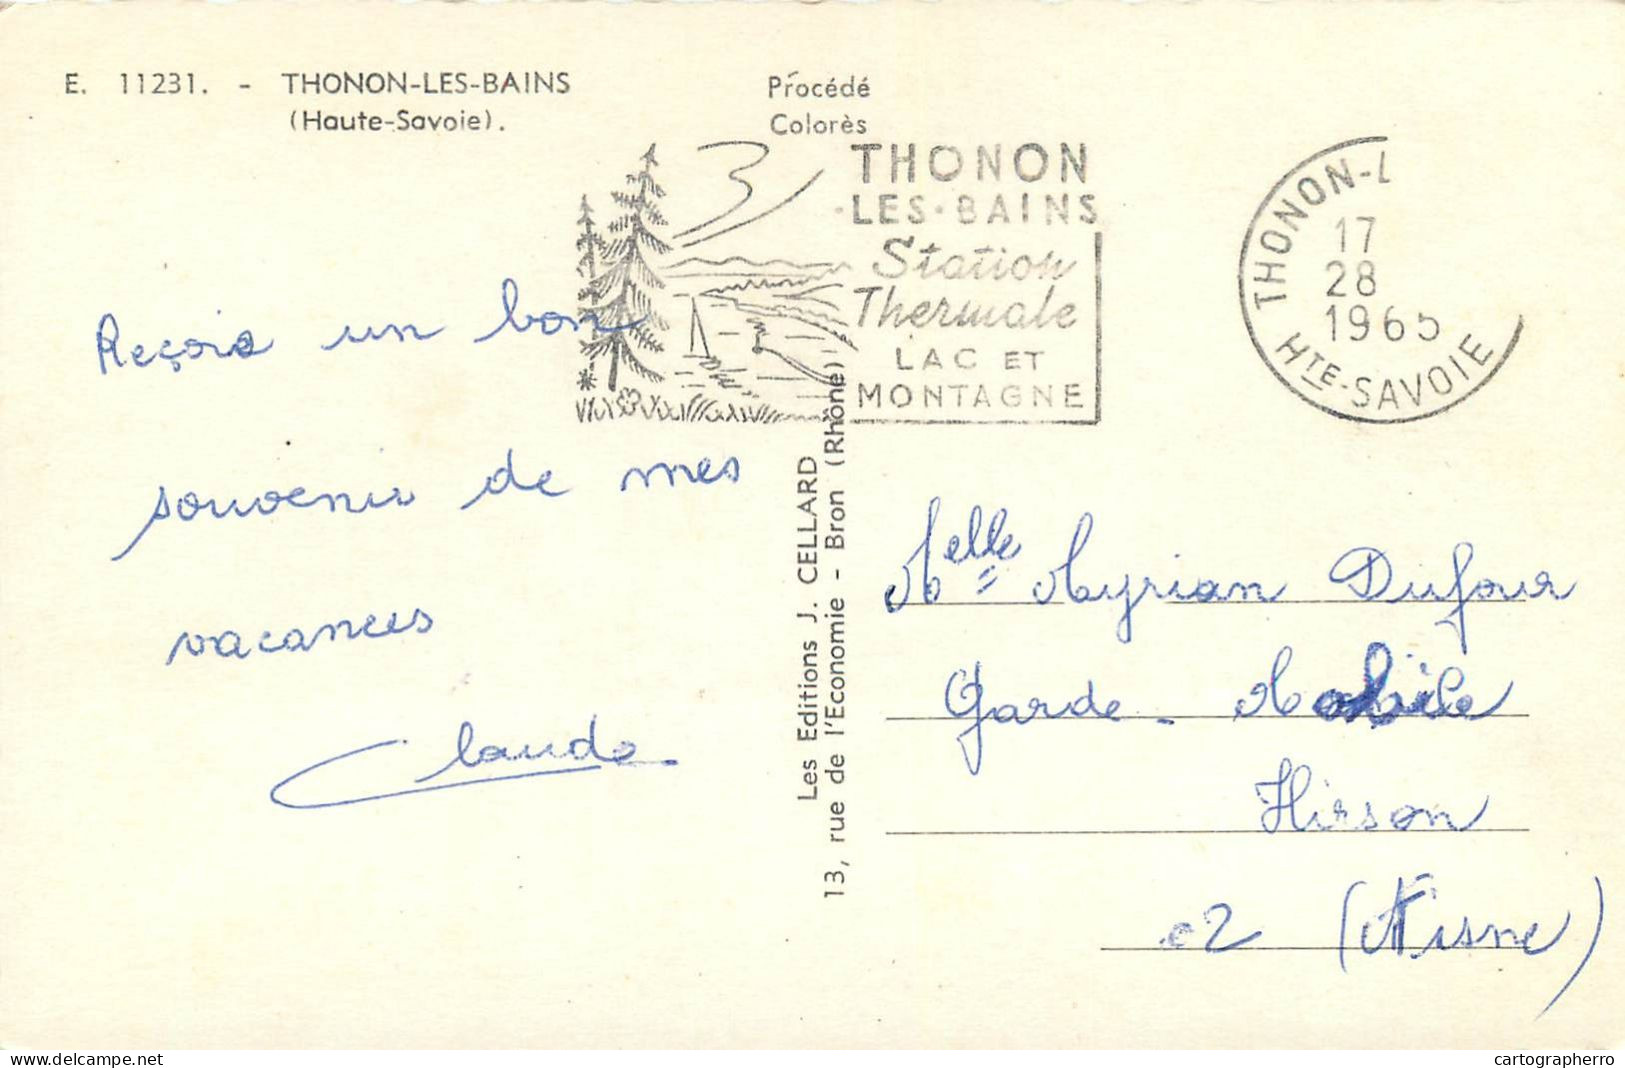 E. 11231. - THONON-LES-BAINS
(Haute-Savoie).
Procédé
Colorès
THONON
·LES·BAINS
Station
Thermale
LAC ET
MONTAGNE
THONON-L
17
28
1965
HTE-SAVOIE
Reçois un bon
souvenir de mes
vacances
Claude
Les Editions J. CELLARD
13, rue de l'Economie - Bron (Rhône)
Melle Myrian Dufour
Garde - Mobile
Hirson
02 (Aisne)
delcampe.net
cartographerro